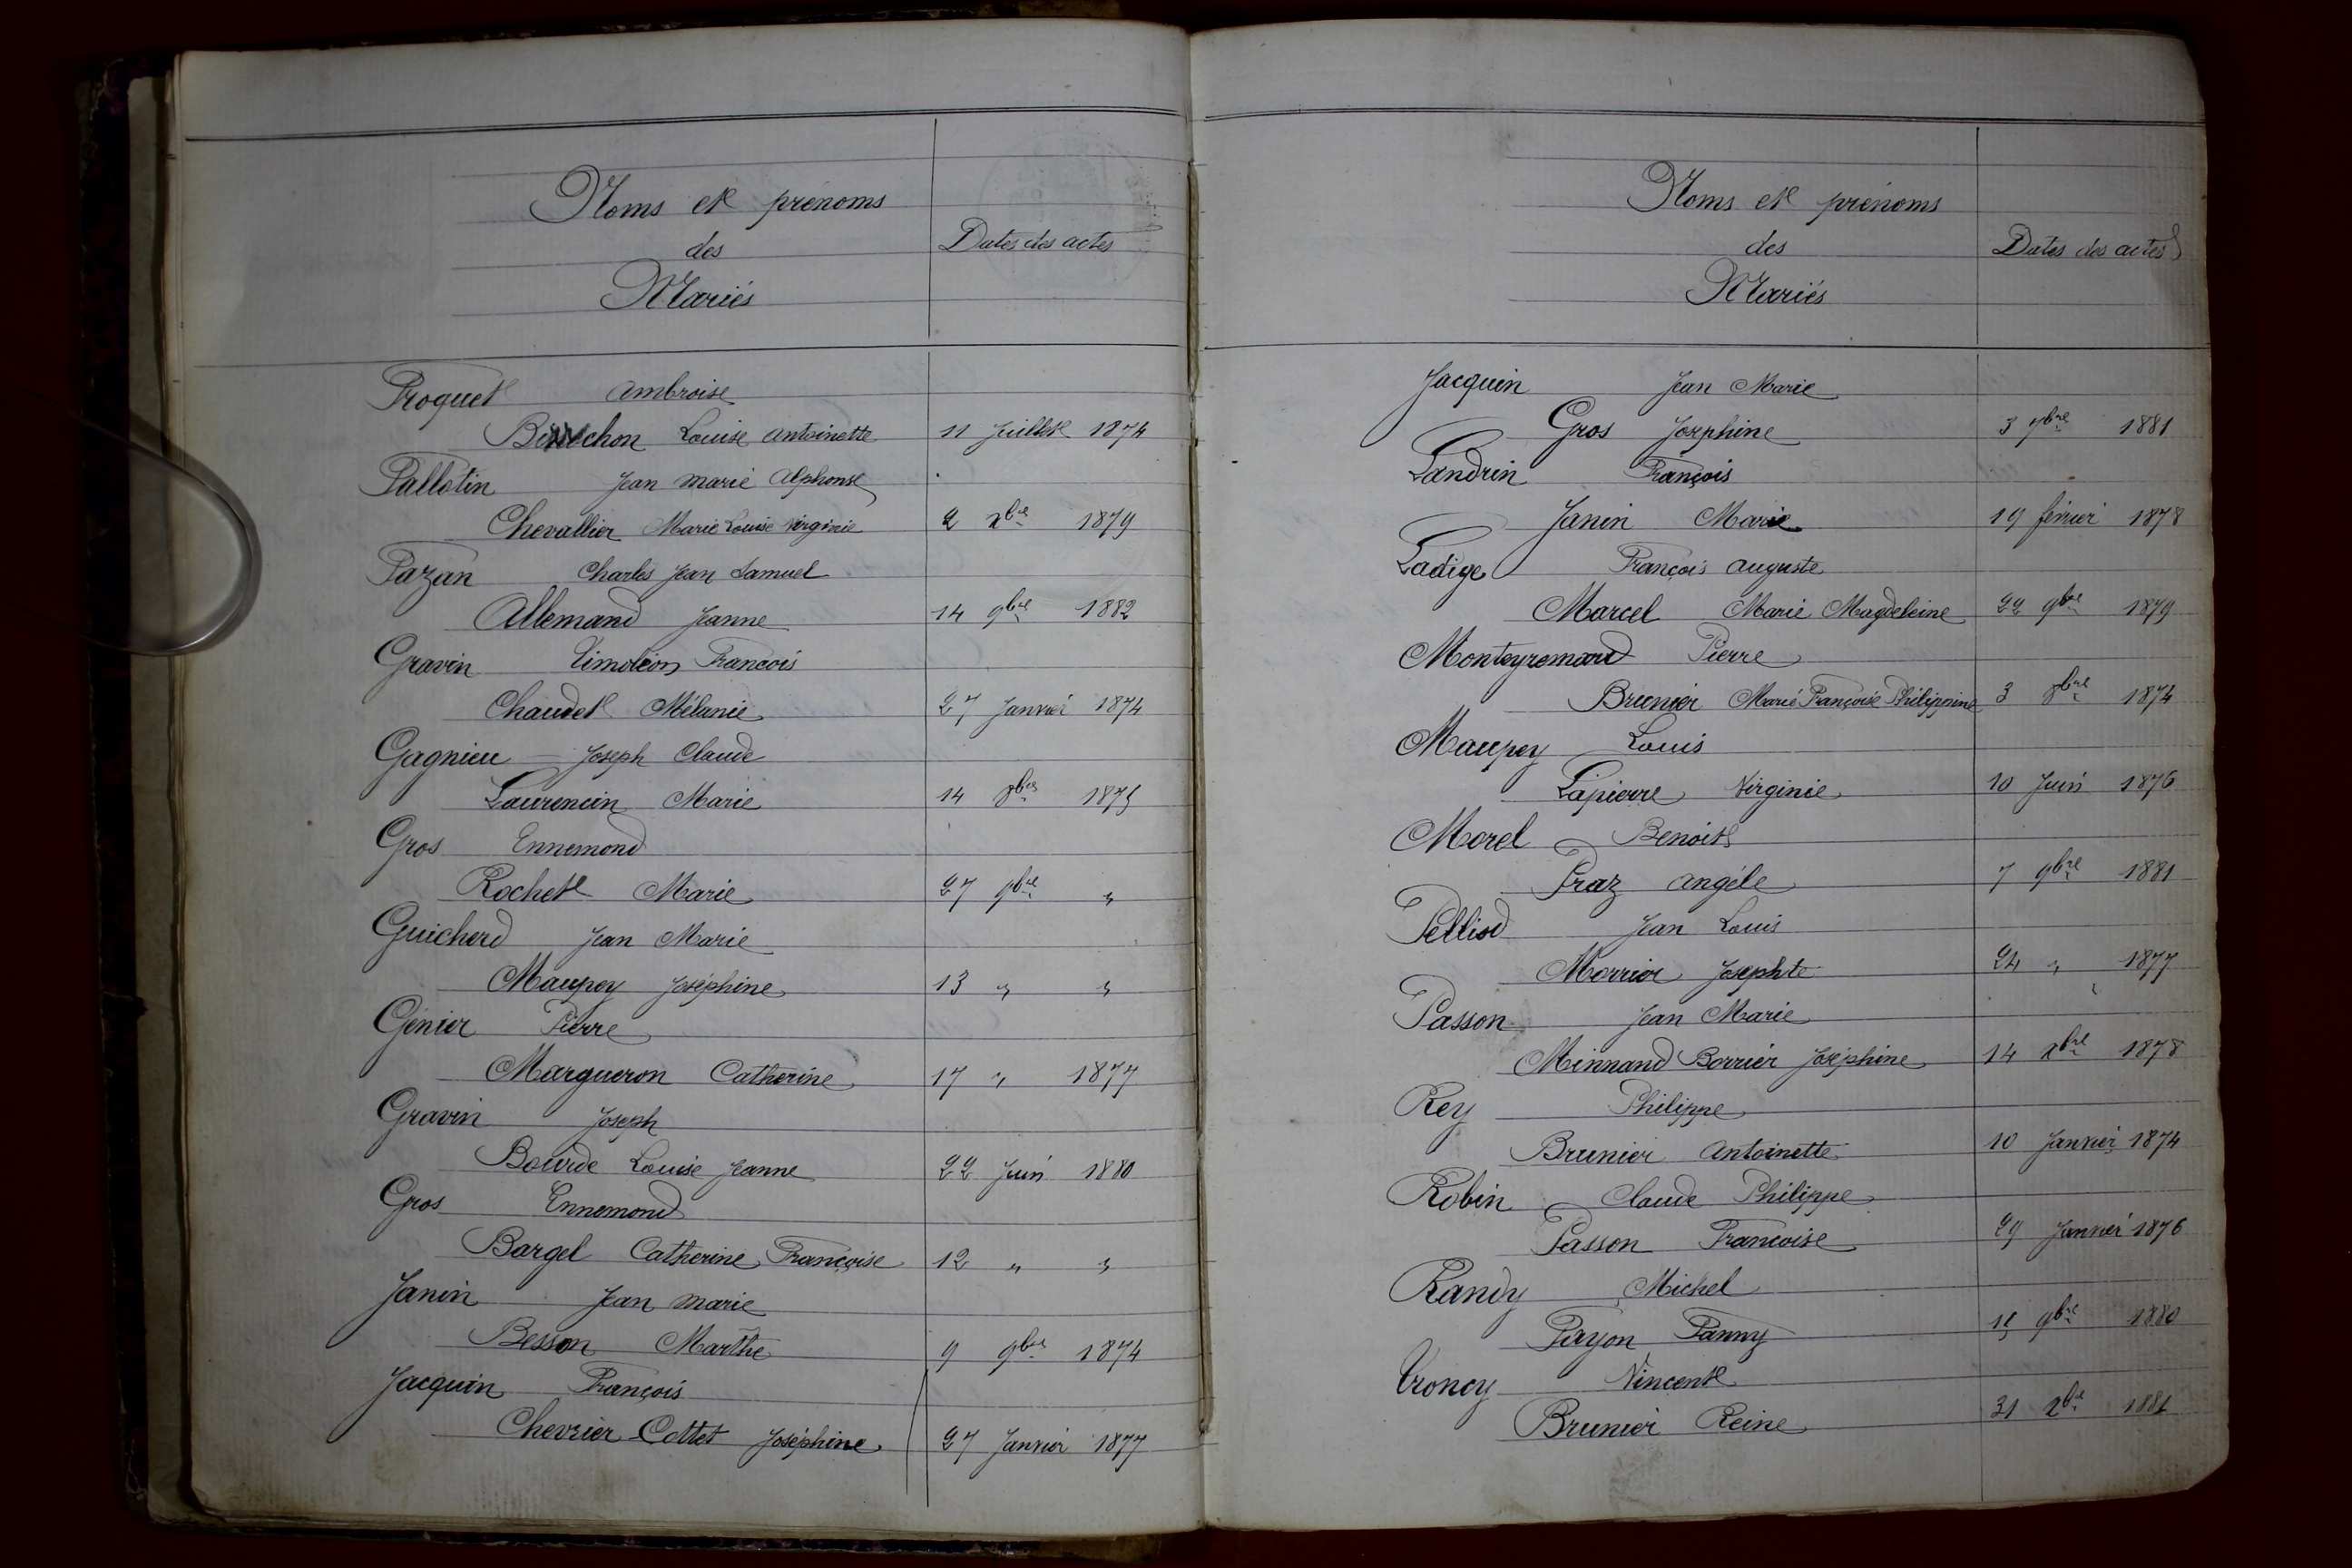 Noms et prénoms
des
Mariés
Dates des actes
Froquet Ambroise
Beruchon Louise Antoinette 11 Juillet 1874
Fallotin Jean Marie Alphonse
Chevallier Marie Louise Virginie 2 Xbre 1879
Fazan Charles Jean Samuel
Allemand Jeanne 14 9bre 1882
Gravin Timoléon Francois
Chaudet Mélanie 27 Janvier 1874
Gagnieu Joseph Claude
Laurencin Marie 14 8bre 1875
Gros Ennemond
Rochet Marie 27 9bre "
Guicherd Jean Marie
Maupey Joséphine 13 " "
Génier Pierre
Margueron Catherine 17 " 1877
Gravin Joseph
Bourde Louise Jeanne 22 Juin 1880
Gros Ennemond
Bargel Catherine Françoise 12 " "
Janin Jean Marie
Besson Marthe 9 9bre 1874
Jacquin François
Chevrier Cottet Joséphine 27 Janvier 1877
Noms et prénoms
des
Mariés
Dates des actes
Jacquin Jean Marie
Gros Josephine 3 7bre 1881
Landrin François
Janin Marie 19 février 1878
Ladige François Auguste
Marcel Marie Magdeleine 22 9bre 1879
Monteyremard Pierre
Brunier Marie Françoise Philippine 3 8bre 1874
Maupey Louis
Lapierre Virginie 10 Juin 1876
Morel Benoit
Fraz Angéle 7 9bre 1881
Pelliod Jean Louis
Morrier Josephte 24 " 1877
Passon Jean Marie
Minnand Borrier Joséphine 14 Xbre 1878
Rey Philippe
Brunier Antoinette 10 Janvier 1874
Robin Claude Philippe
Passon Francoise 29 Janvier 1876
Randy Michel
Fayon Fanny 15 9bre 1880
Troncy Vincent
Brunier Reine 31 Xbre 1881